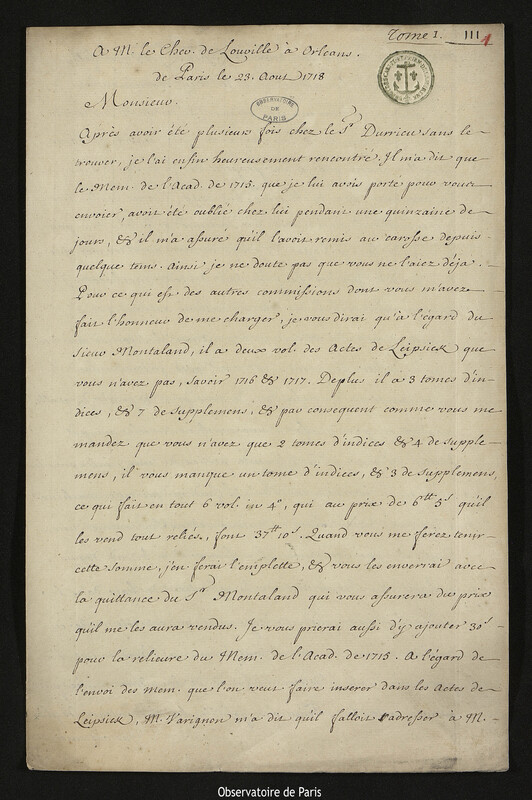 Tome I. III 1
A M. le Chev. de Louville à Orleans.
de Paris le 23. Aout 1718
OBSERVATOIRE DE PARIS
Monsieur.
Après avoir été plusieurs fois chez le Sr. Durrieu sans le
trouver, je l'ai enfin heureusement rencontré. Il m'a dit que
le Mem. de l'Acad. de 1715. que je lui avois porté pour vous
envoier, avoit été oublié chez lui pendant une quinzaine de
jours, & il m'a assuré qu'il l'avoit remis au carosse depuis
quelque tems. Ainsi je ne doute pas que vous ne l'aiez déja.
Pour ce qui est des autres commissions dont vous m'avez
fait l'honneur de me charger, je vous dirai qu'à l'égard du
sieur Montaland, il a deux vol. des Actes de Leipsick que
vous n'avez pas, savoir 1716 & 1717. Deplus il a 3 tomes d'in-
dices, & 7 de supplemens, & par consequent comme vous me
mandez que vous n'avez que 2 tomes d'indices & 4 de supple-
mens, il vous manque un tome d'indices, & 3 de supplemens,
ce qui fait en tout 6 vol. in 4°, qui au prix de 6tt 5s qu'il
les vend tout reliés, font 37tt 10s. Quand vous me ferez tenir
cette somme, j'en ferai l'emplette, & vous les enverrai avec
la quittance du Sr. Montaland qui vous assurera du prix
qu'il me les aura vendus. Je vous prierai aussi d'y ajouter 30s
pour la relieure du Mem. de l'Acad. de 1715. A l'égard de
l'envoi des mem. que l'on veut faire inserer dans les Actes de
Leipsick, M. Varignon m'a dit qu'il falloit s'adresser à M.
Observatoire de Paris